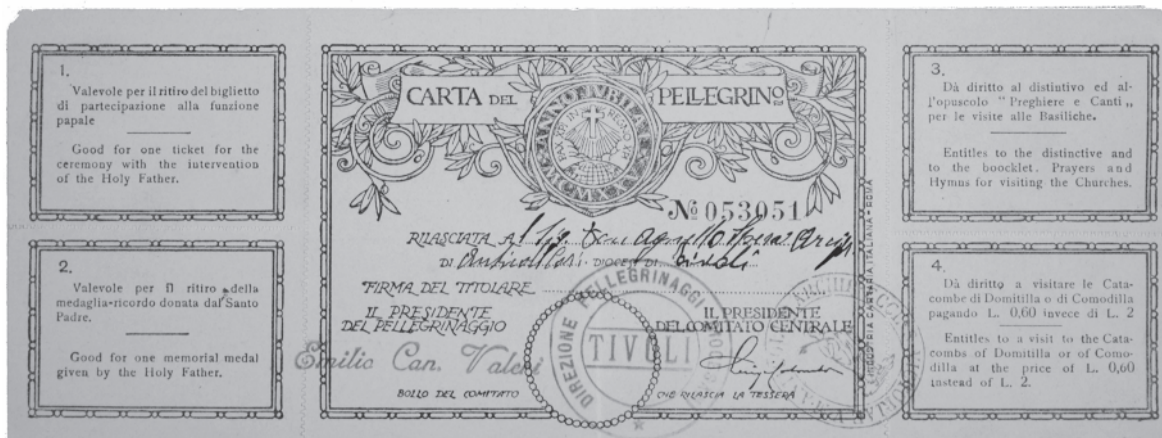 1.
Valevole per il ritiro del biglietto
di partecipazione alla funzione
papale
Good for one ticket for the
ceremony with the intervention
of the Holy Father.
2.
Valevole per il ritiro della
medaglia-ricordo donata dal Santo
Padre.
Good for one memorial medal
given by the Holy Father.
CARTA DEL PELLEGRINO
PAX CHRISTI IN REGNO XRI
No 053051
RILASCIATA A
DI DIOCESI DI Tivoli
FIRMA DEL TITOLARE
IL PRESIDENTE
DEL PELLEGRINAGGIO
Emilio Can. Valeri
IL PRESIDENTE
DEL COMITATO CENTRALE
DIREZIONE PELLEGRINAGGI
TIVOLI
BOLLO DEL COMITATO
CHE RILASCIA LA TESSERA
INDUSTRIA CARTARIA ITALIANA - ROMA
3.
Dà diritto al distiutivo ed al-
l'opuscolo " Preghiere e Canti „
per le visite alle Basiliche.
Entitles to the distinctive and
to the boocklet. Prayers and
Hymus for visiting the Churches.
4.
Dà diritto a visitare le Cata-
combe di Domitilla o di Comodilla
pagando L. 0,60 invece di L. 2
Entitles to a visit to the Cata-
combs of Domitilla or of Como-
dilla at the price of L. 0,60
instead of L. 2.